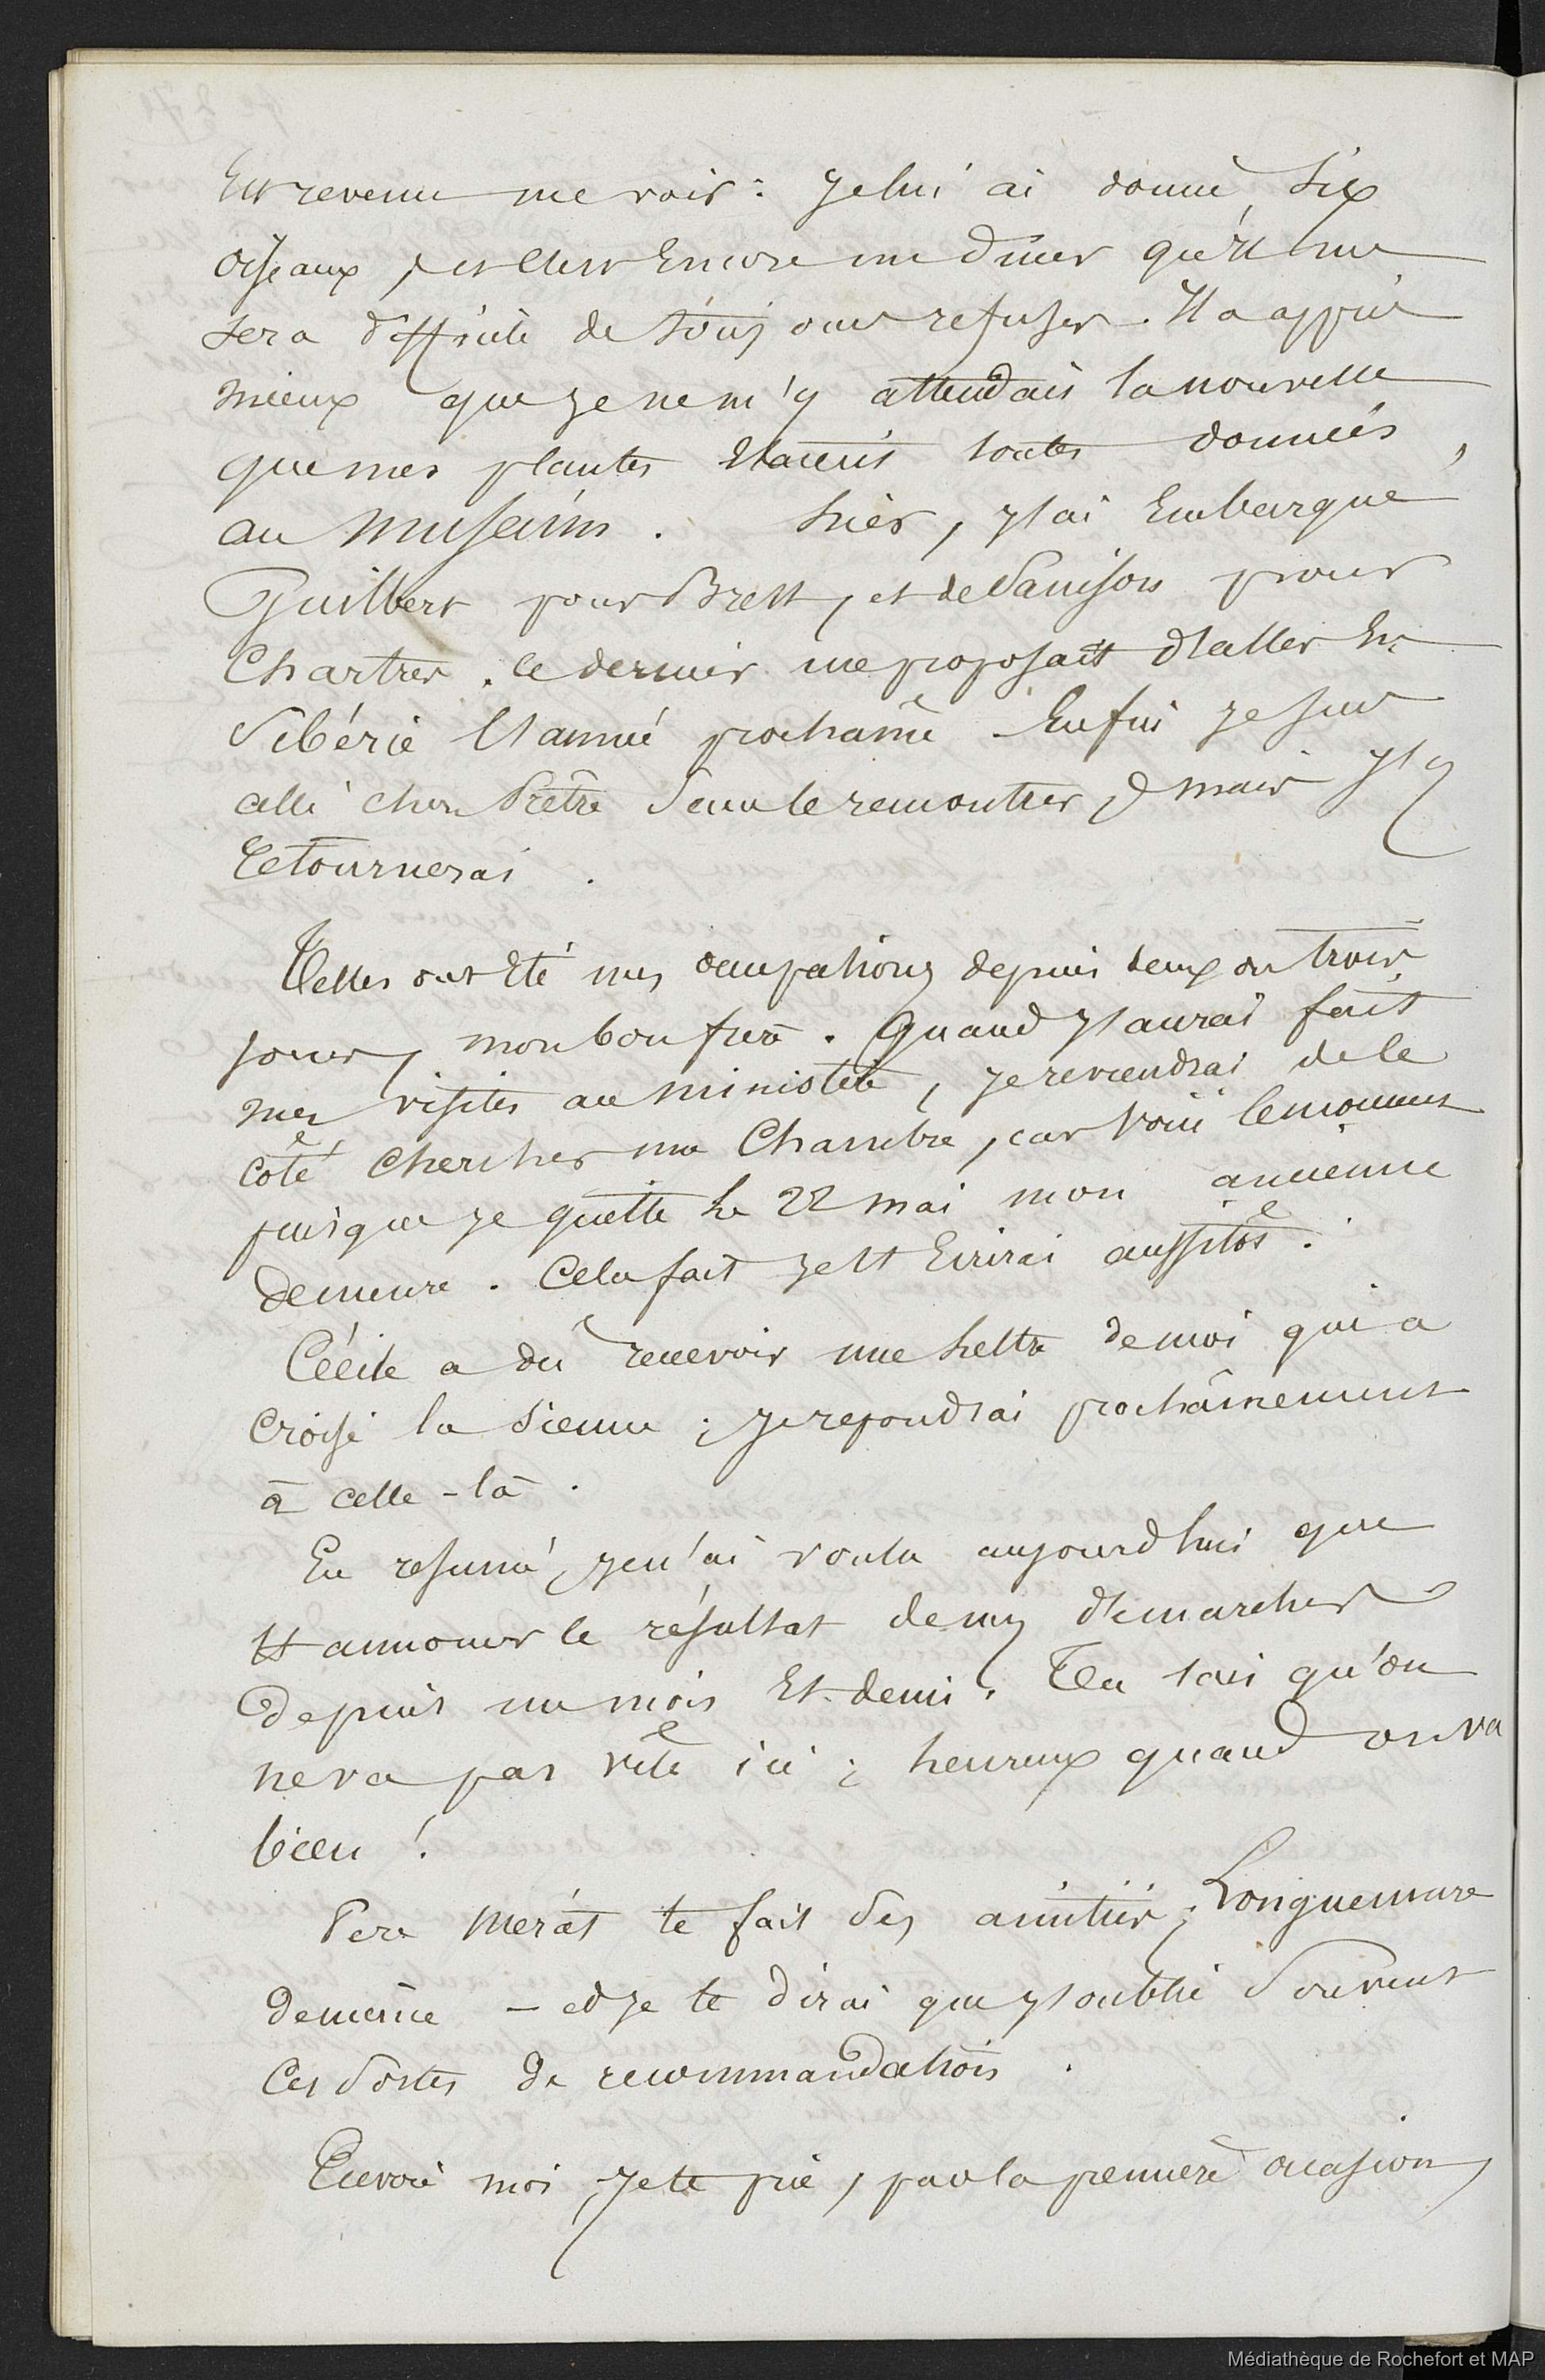 Est revenu me voir : je lui ai donné six
oiseaux, et c'est encore un diner qu'il me
sera difficile de toujours refuser. Il a appris
mieux que je ne m'y attendais la nouvelle
que mes plantes étaient toutes données,
au muséum. hier, j'ai Embarqué
Guilbert pour Brest, et de Sanison pour
Chartres. ce dernier me proposait d'aller En
Sibérie l'année prochaine. Enfin je suis
allé chez Prêtre sans le rencontrer, mais j'y
retournerai.
Telles ont été mes occupations depuis deux ou trois
jours, mon bon frère. Quand j'aurai fait
mes visites au ministère, je reviendrai de ce
côté chercher une Chambre, car voici le moment
puisque je quitte le 22 mai mon ancienne
demeure. Cela fait je t'Ecrirai aussitôt.
Cécile a dû recevoir une lettre de moi qui a
croisé la sienne ; je répondrai prochainement
à celle-là.
En résumé, je n'ai voulu aujourd'hui que
t'annoncer le résultat de mes démarches
depuis un mois Et demi. Tu sais qu'on
ne va pas vite ici ; heureux quand on va
bien !
Père Mérat te fait des amitiés ; Longuemare
de même – et je te dirai que j'oublie souvent
ces sortes de recommandations.
Envoie moi, je te prie, par la première occasion,
Médiathèque de Rochefort et MAP